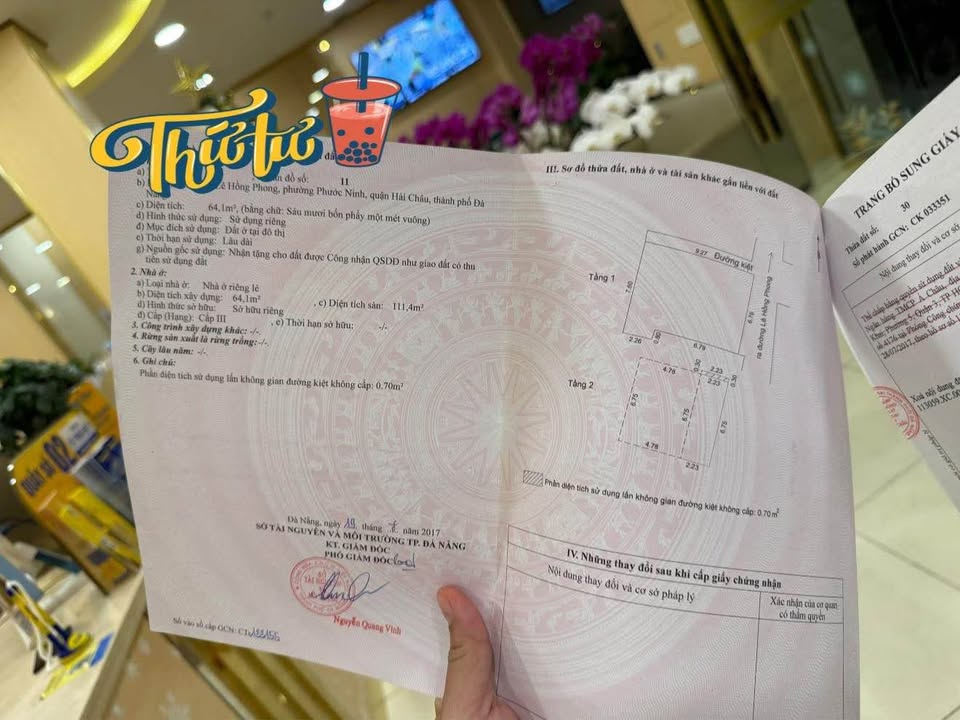 Thứ tư
11
Lê Hồng Phong, phường Phước Ninh, quận Hải Châu, thành phố Đà
c) Diện tích: 64,1m², (bằng chữ: Sáu mươi bốn phẩy một mét vuông)
d) Hình thức sử dụng: Sử dụng riêng
đ) Mục đích sử dụng: Đất ở tại đô thị
e) Thời hạn sử dụng: Lâu dài
g) Nguồn gốc sử dụng: Nhận tặng cho đất được Công nhận QSDĐ như giao đất có thu
tiền sử dụng đất
2. Nhà ở:
a) Loại nhà ở: Nhà ở riêng lẻ
b) Diện tích xây dựng: 64,1m² , c) Diện tích sàn: 111,4m²
d) Hình thức sở hữu: Sở hữu riêng
đ) Cấp (Hạng): Cấp III , e) Thời hạn sở hữu: -/-
3. Công trình xây dựng khác: -/-
4. Rừng sản xuất là rừng trồng: -/-.
5. Cây lâu năm: -/-.
6. Ghi chú:
Phần diện tích sử dụng lấn không gian đường kiệt không cấp: 0.70m²
Đà Nẵng, ngày 19 tháng 7 năm 2017
SỞ TÀI NGUYÊN VÀ MÔI TRƯỜNG TP. ĐÀ NẴNG
KT. GIÁM ĐỐC
PHÓ GIÁM ĐỐC
Nguyễn Quang Vinh
Số vào sổ cấp GCN:
III. Sơ đồ thửa đất, nhà ở và tài sản khác gắn liền với đất
Tầng 1
9.27 Đường kiệt
7.60
6.76
ra đường Lê Hồng Phong
2.26
0.80
6.79
Tầng 2
4.78
0.30
2.23
2.23
0.30
6.75
6.75
6.75
4.78
2.23
Phần diện tích sử dụng lấn không gian đường kiệt không cấp: 0.70 m²
IV. Những thay đổi sau khi cấp giấy chứng nhận
Nội dung thay đổi và cơ sở pháp lý
Xác nhận của cơ quan
có thẩm quyền
TRANG BỔ SUNG GIẤY
Thửa đất số: 30
Số phát hành GCN: CK 033351
Nội dung thay đổi và cơ sở
QUẦY SỐ 02